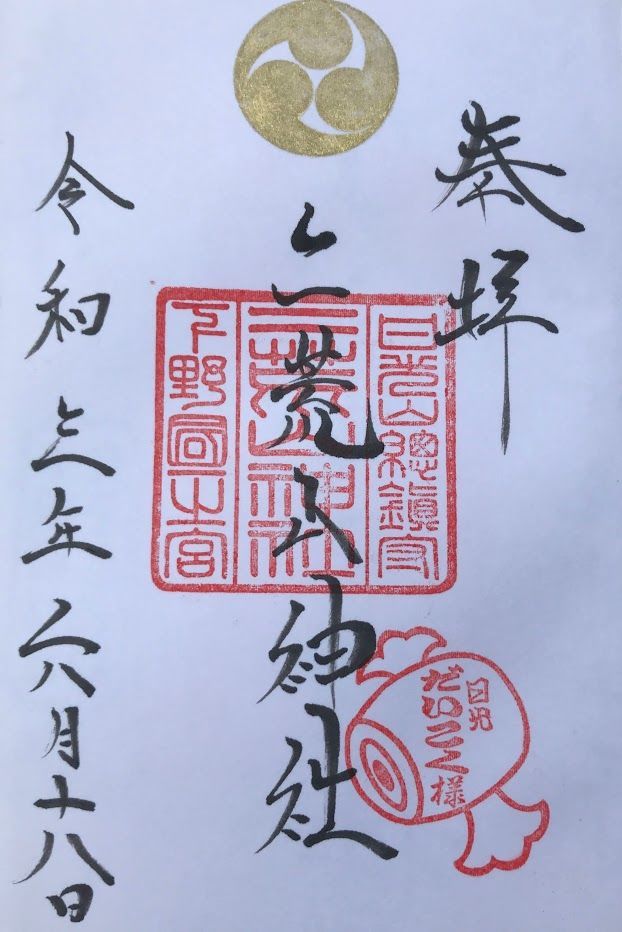 奉拝
日光山總鎮守
二荒山神社
二荒山神社
下野國一之宮
日光
だいこく様
令和三年六月十八日